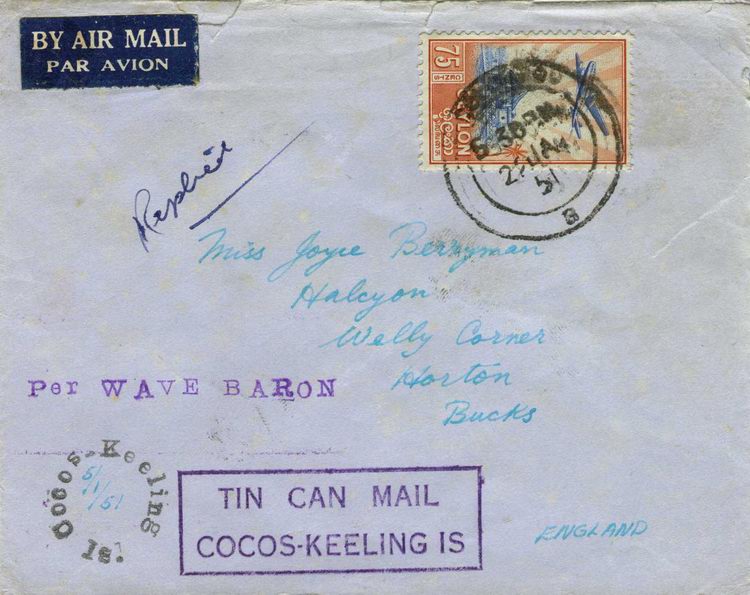 BY AIR MAIL
PAR AVION
75
CENTS
CEYLON
5 30 PM
22 JAN
51
Replied
Miss Joyce Berryman
Halcyon
Welly Corner
Horton
Bucks
ENGLAND
Per WAVE BARON
Cocos-Keeling Isl.
5/
1/
/51
TIN CAN MAIL
COCOS-KEELING IS